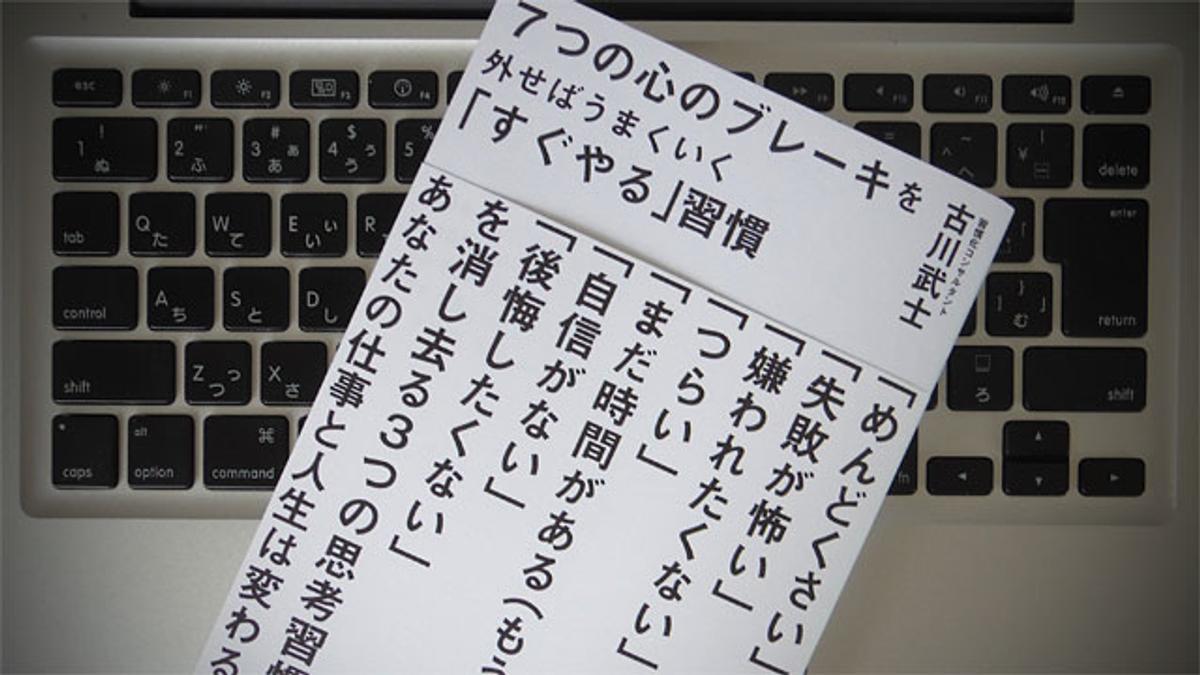 7つの心のブレーキを
外せばうまくいく
「すぐやる」習慣
習慣化コンサルタント
古川武士
「めんどくさい」
「失敗が怖い」
「嫌われたくない」
「つらい」
「まだ時間がある(もう
「自信がない」
「後悔したくない」
を消し去る3つの思考習慣
あなたの仕事と人生は変わる
esc F1 F2 F3 F4 F9 F10 F11 F12
! 1 ぬ " 2 ふ # 3 ぁ あ $ 4 ぅ う % 5 = ~ へ | ¥ delete
tab Q た W て E ぃ い R enter
control A ち S と D し } ] む return
shift Z っ つ X さ ろ shift
caps alt option ⌘ command fn